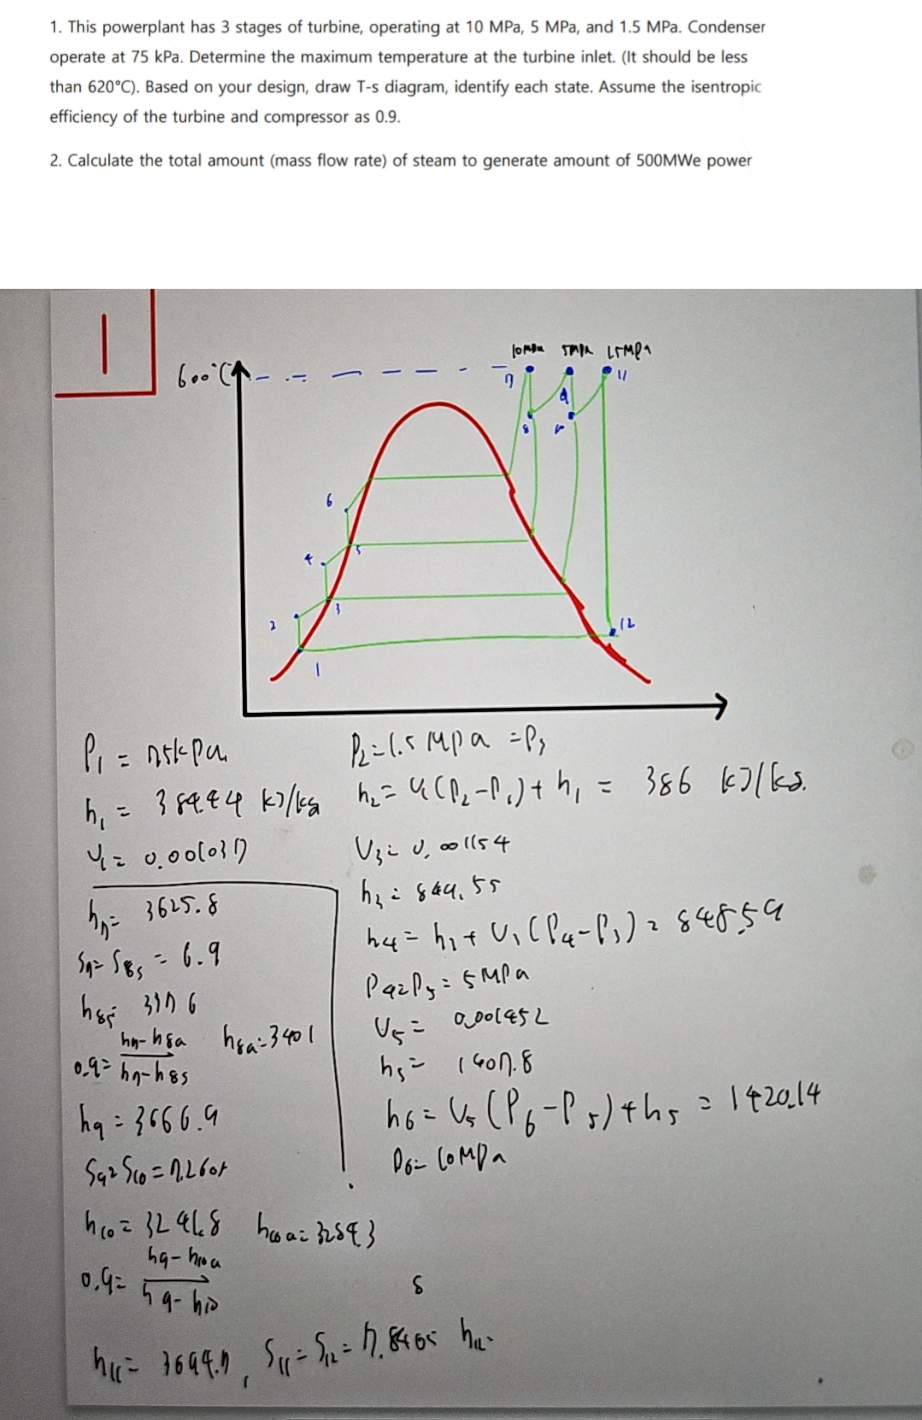 1. This powerplant has 3 stages of turbine, operating at 10 MPa, 5 MPa, and 1.5 MPa. Condenser
operate at 75 kPa. Determine the maximum temperature at the turbine inlet. (It should be less
than 620°C). Based on your design, draw T-s diagram, identify each state. Assume the isentropic
efficiency of the turbine and compressor as 0.9.
2. Calculate the total amount (mass flow rate) of steam to generate amount of 500MWe power
1
600°C
10MPa 5MPa 1.5MPa
7 9 11
8
6
4 5
2 3
12
1
P₁ = 75kPa
h₁ = 384.44 kJ/kg
V₁ = 0.001037
P₂ = 1.5 MPa = P₃
h₂ = V₁(P₂-P₁) + h₁ = 386 kJ/kg.
V₃ = 0.001154
h₃ = 844.55
h₄ = h₃ + V₃(P₄-P₃) = 848.59
P₄ = P₅ = 5MPa
V₅ =
h₅ = 1407.8
h₆ = V₅(P₆-P₅) + h₅ = 1420.14
P₆ = 10MPa
h₇ = 3625.8
S₇ = S₈s = 6.9
h₈s = 3376
0.9 = h₇-h₈a / h₇-h₈s h₈a = 3401
h₉ = 3666.9
S₉ = S₁₀ = 7.2605
h₁₀ = 3241.8 h₁₀a = 3284.3
0.9 = h₉-h₁₀a / h₉-h₁₀
s
h₁₁ = 3694.7, S₁₁ = S₁₂ = 7.8405 h₁₂